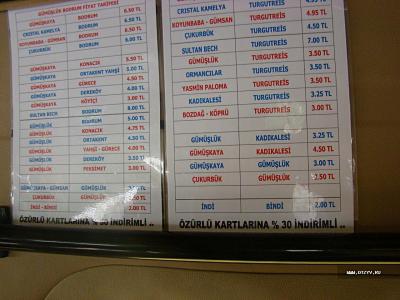 GÜMÜŞLÜK BODRUM FİYAT TARİFESİ
GÜMÜŞKAYA BODRUM 6.50 TL
CRISTAL KAMELYA BODRUM
KOYUNBABA - GÜMSAN BODRUM
ÇUKURBÜK BODRUM 5.00 TL
GÜMÜŞKAYA KONACIK 5.50 TL
GÜMÜŞKAYA ORTAKENT YAHŞİ 5.00 TL
GÜMÜŞKAYA GÜRECE 4.50 TL
GÜMÜŞKAYA DEREKÖY 4.00 TL
GÜMÜŞKAYA KÖYİÇİ 3.00 TL
SULTAN BECH BODRUM 6.00 TL
GÜMÜŞLÜK BODRUM 5.00 TL
GÜMÜŞLÜK KONACIK 4.75 TL
GÜMÜŞLÜK ORTAKENT 4.50 TL
GÜMÜŞLÜK YAHŞİ - GÜRECE 4.00 TL
GÜMÜŞLÜK DEREKÖY 3.50 TL
GÜMÜŞLÜK PEKSİMET 3.00 TL
GÜMÜŞKAYA - GÜMSAN GÜMÜŞLÜK
ÇUKURBÜK GÜMÜŞLÜK
İNDİ - BİNDİ 2.00 TL
ÖZÜRLÜ KARTLARINA % 30 İNDİRİMLİ ..
CRISTAL KAMELYA TURGUTREİS 4.95 TL
KOYUNBABA - GÜMSAN TURGUTREİS
ÇUKURBÜK TURGUTREİS
SULTAN BECH TURGUTREİS
GÜMÜŞLÜK TURGUTREİS 3.50 TL
ORMANCILAR TURGUTREİS
YASMİN PALOMA TURGUTREİS
KADIKALESİ TURGUTREİS 3.25 TL
BOZDAĞ - KÖPRÜ TURGUTREİS 3.00 TL
GÜMÜŞLÜK KADIKALESİ 3.25 TL
GÜMÜŞKAYA KADIKALESİ 4.50 TL
GÜMÜŞKAYA GÜMÜŞLÜK 3.00 TL
ÇUKURBÜK GÜMÜŞLÜK 2.50 TL
İNDİ BİNDİ 2.00 TL
ÖZÜRLÜ KARTLARINA % 30 İNDİRİMLİ ..
WWW.OTZYV.RU